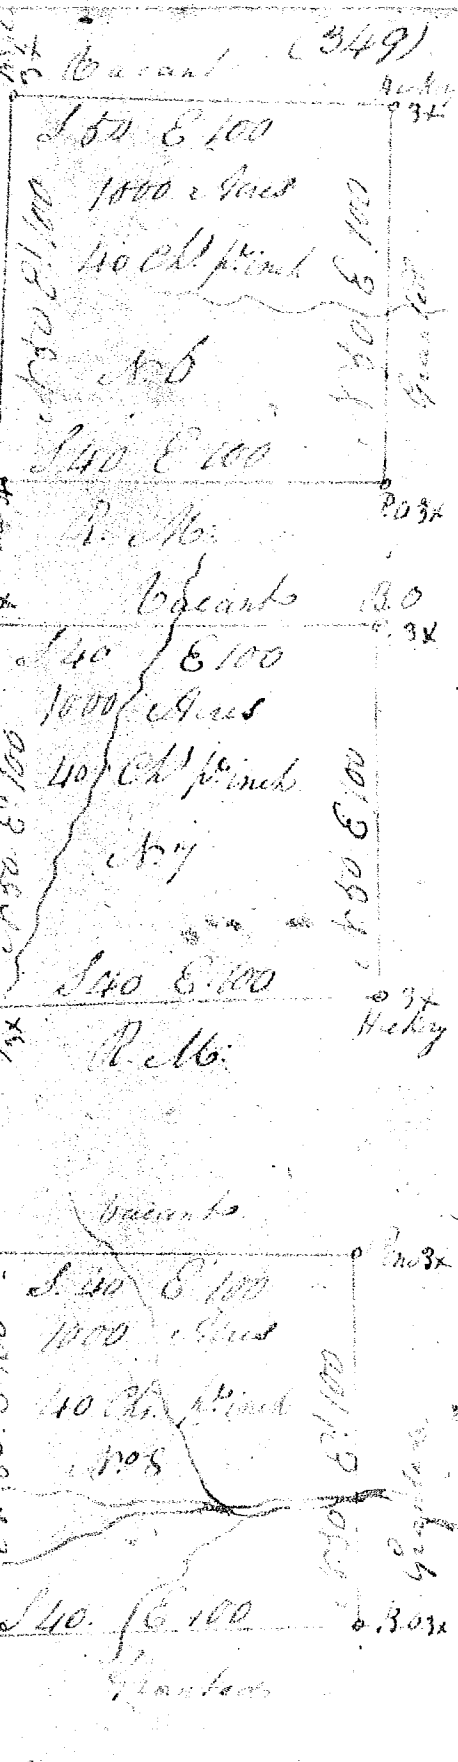 (349)
Vacant
3x
3x
S 50 E 100
1000 Acres
40 Chs pr. inch
No 6
S 40 E 100
N 50 E 100
N 50 E 100
Granted
BO 3x
R. M.
Vacant
B.O
3x
S 40 E 100
1000 Acres
40 Chs pr inch
No 7
N 50 E 100
N 50 E 100
S 40 E 100
3x
Hickry
3x
R. M.
Vacant
Pine 3x
S. 40 E 100
1000 Acres
40 Chs. pr. inch
No 8
N 50 E 100
Granted
S 40. E 100
B O 3x
Granted